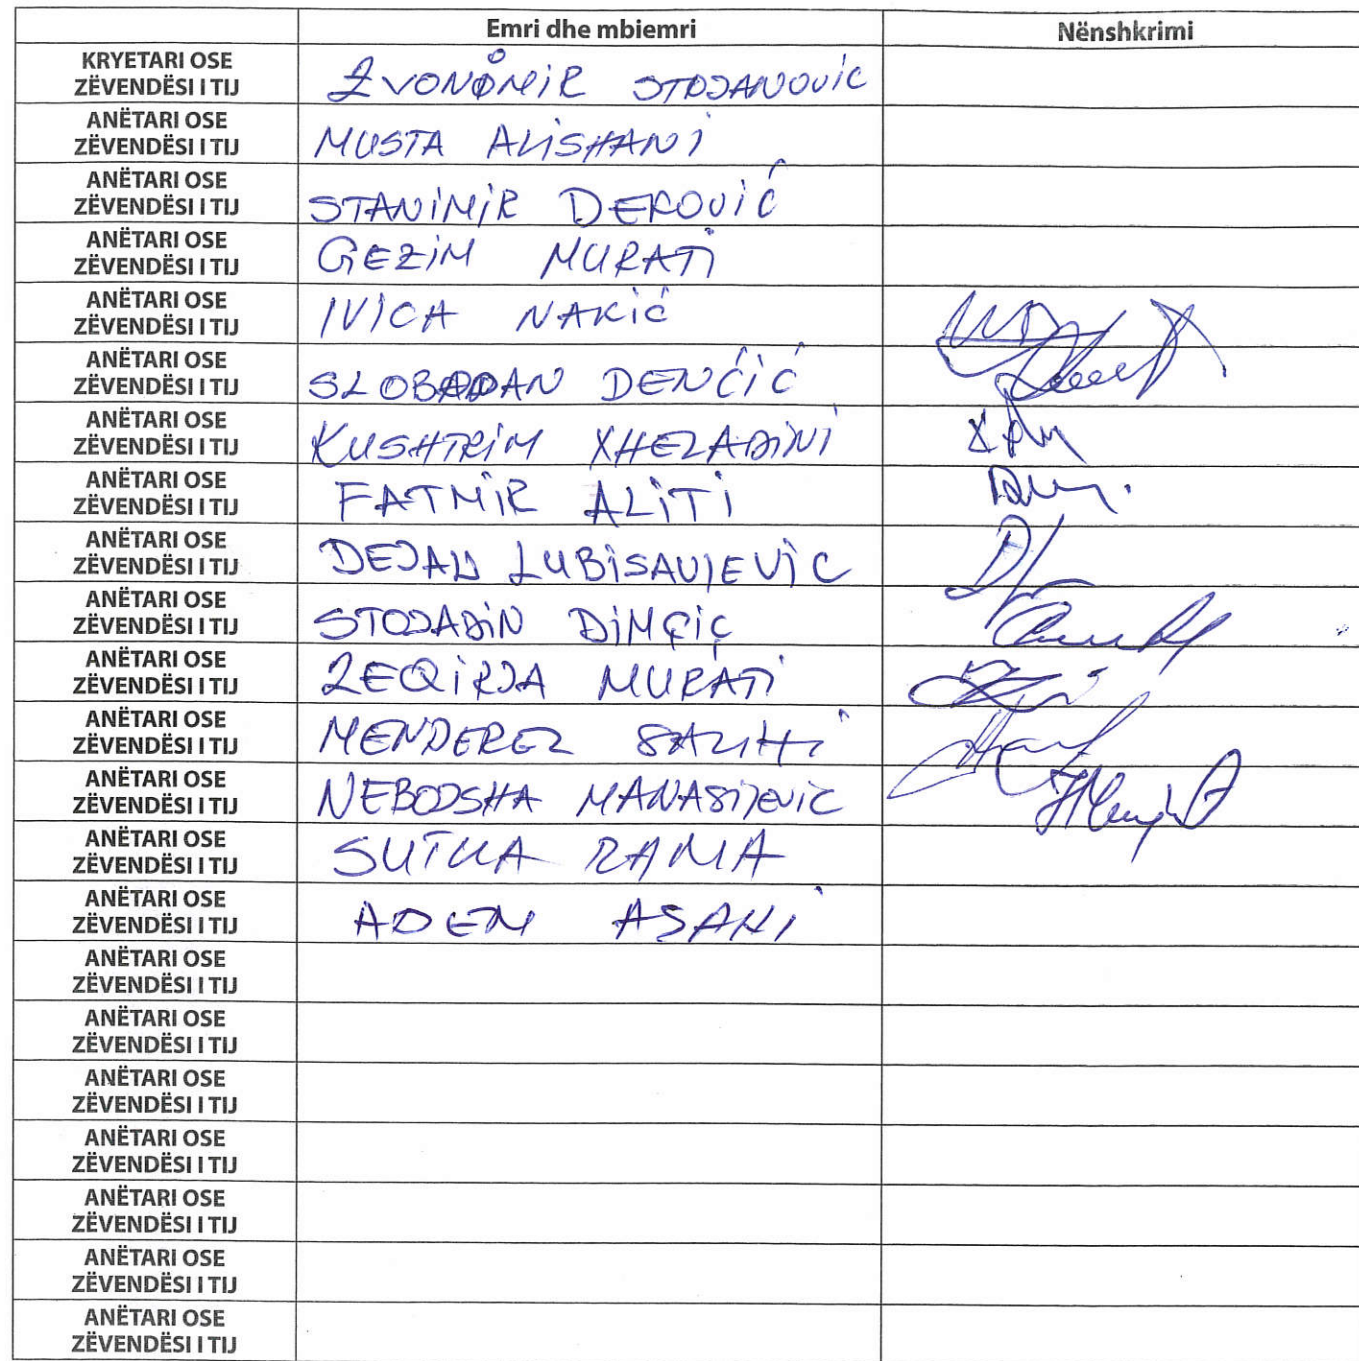 Emri dhe mbiemri Nënshkrimi
KRYETARI OSE
ZËVENDËSI I TIJ ZVONOMIR STOJANOVIC
ANËTARI OSE
ZËVENDËSI I TIJ MUSTA ALISHANI
ANËTARI OSE
ZËVENDËSI I TIJ STANIMIR DEKOVIĆ
ANËTARI OSE
ZËVENDËSI I TIJ GEZIM MURATI
ANËTARI OSE
ZËVENDËSI I TIJ IVICA NAKIĆ
ANËTARI OSE
ZËVENDËSI I TIJ SLOBODAN DENĆIĆ
ANËTARI OSE
ZËVENDËSI I TIJ KUSHTRIM XHELADINI
ANËTARI OSE
ZËVENDËSI I TIJ FATMIR ALITI
ANËTARI OSE
ZËVENDËSI I TIJ DEJAN LUBISAVJEVIC
ANËTARI OSE
ZËVENDËSI I TIJ STOJADIN DIMÇIÇ
ANËTARI OSE
ZËVENDËSI I TIJ ZEQIRJA MURATI
ANËTARI OSE
ZËVENDËSI I TIJ MENDEREZ SALIHI
ANËTARI OSE
ZËVENDËSI I TIJ NEBOJSHA MANASIJEVIC
ANËTARI OSE
ZËVENDËSI I TIJ RAMA
ANËTARI OSE
ZËVENDËSI I TIJ ADEM ASANI
ANËTARI OSE
ZËVENDËSI I TIJ
ANËTARI OSE
ZËVENDËSI I TIJ
ANËTARI OSE
ZËVENDËSI I TIJ
ANËTARI OSE
ZËVENDËSI I TIJ
ANËTARI OSE
ZËVENDËSI I TIJ
ANËTARI OSE
ZËVENDËSI I TIJ
ANËTARI OSE
ZËVENDËSI I TIJ